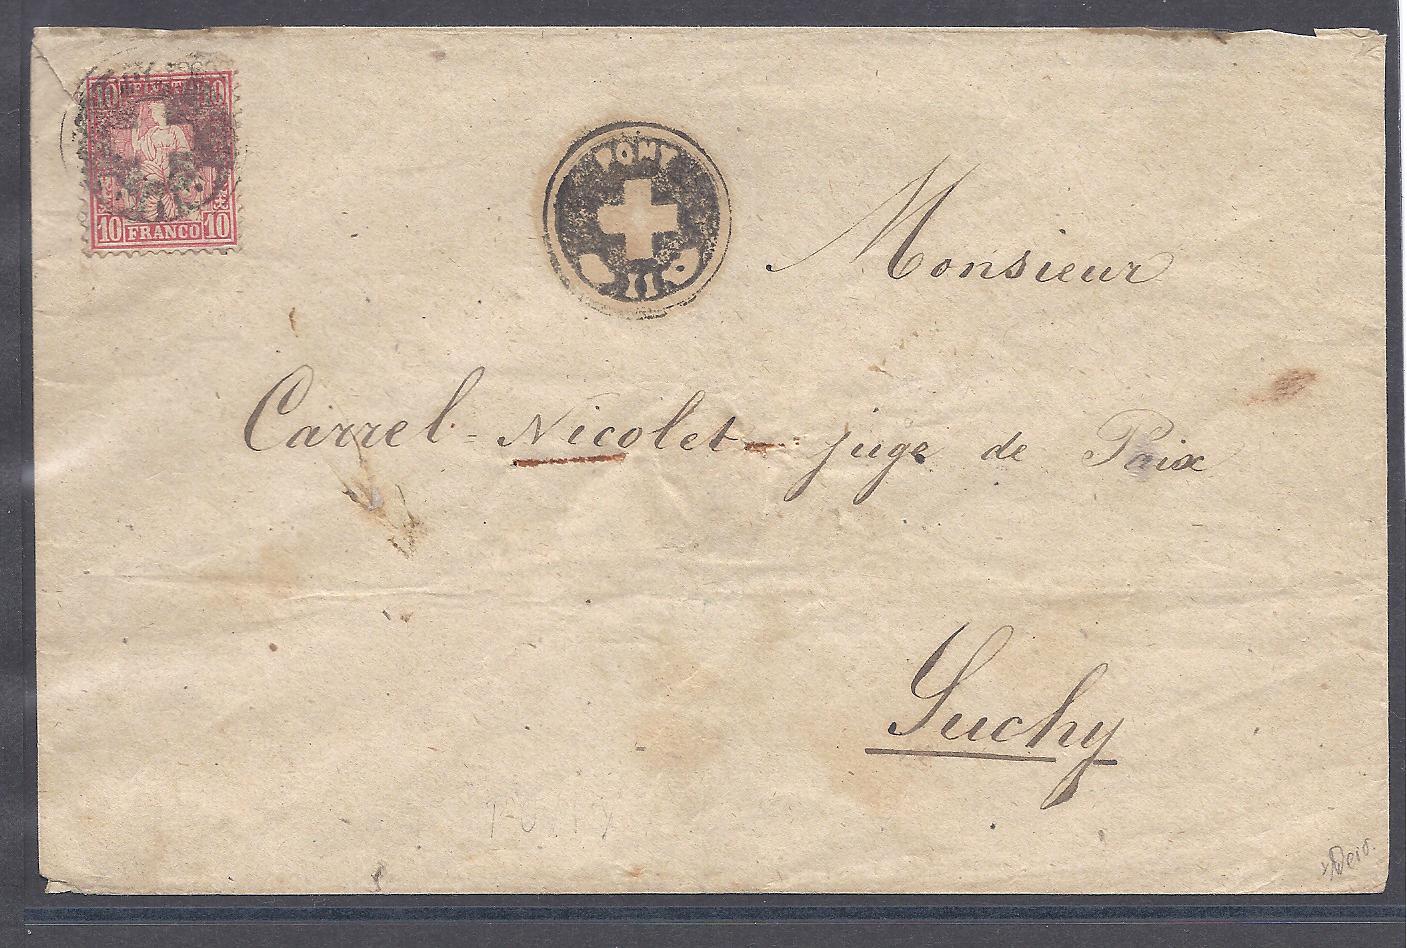 10 HELVETIA 10
10 FRANCO 10
PONT
Monsieur
Carrel-Nicolet juge de Paix
Suchy